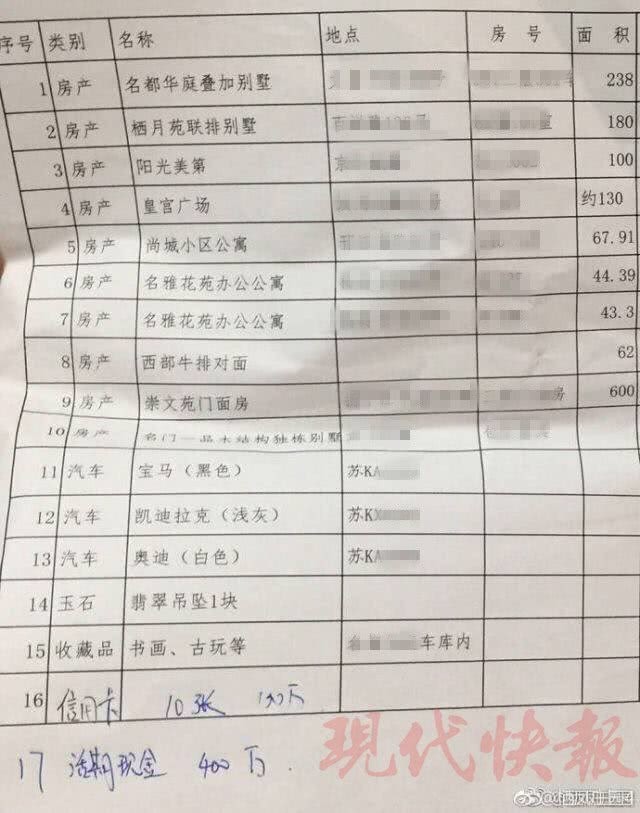 序号 类别 名称 地点 房 号 面 积
1 房产 名都华庭叠加别墅 238
2 房产 栖月苑联排别墅 180
3 房产 阳光美第 100
4 房产 皇宫广场 约130
5 房产 尚城小区公寓 67.91
6 房产 名雅花苑办公公寓 44.39
7 房产 名雅花苑办公公寓 43.3
8 房产 西部牛排对面 62
9 房产 崇文苑门面房 房 600
10 房产 名门一品木结构独栋别墅
11 汽车 宝马（黑色） 苏KA
12 汽车 凯迪拉克（浅灰） 苏KX
13 汽车 奥迪（白色） 苏KA
14 玉石 翡翠吊坠1块
15 收藏品 书画、古玩等 车库内
16 信用卡 10张 130万
17 活期现金 400万.
现代快報